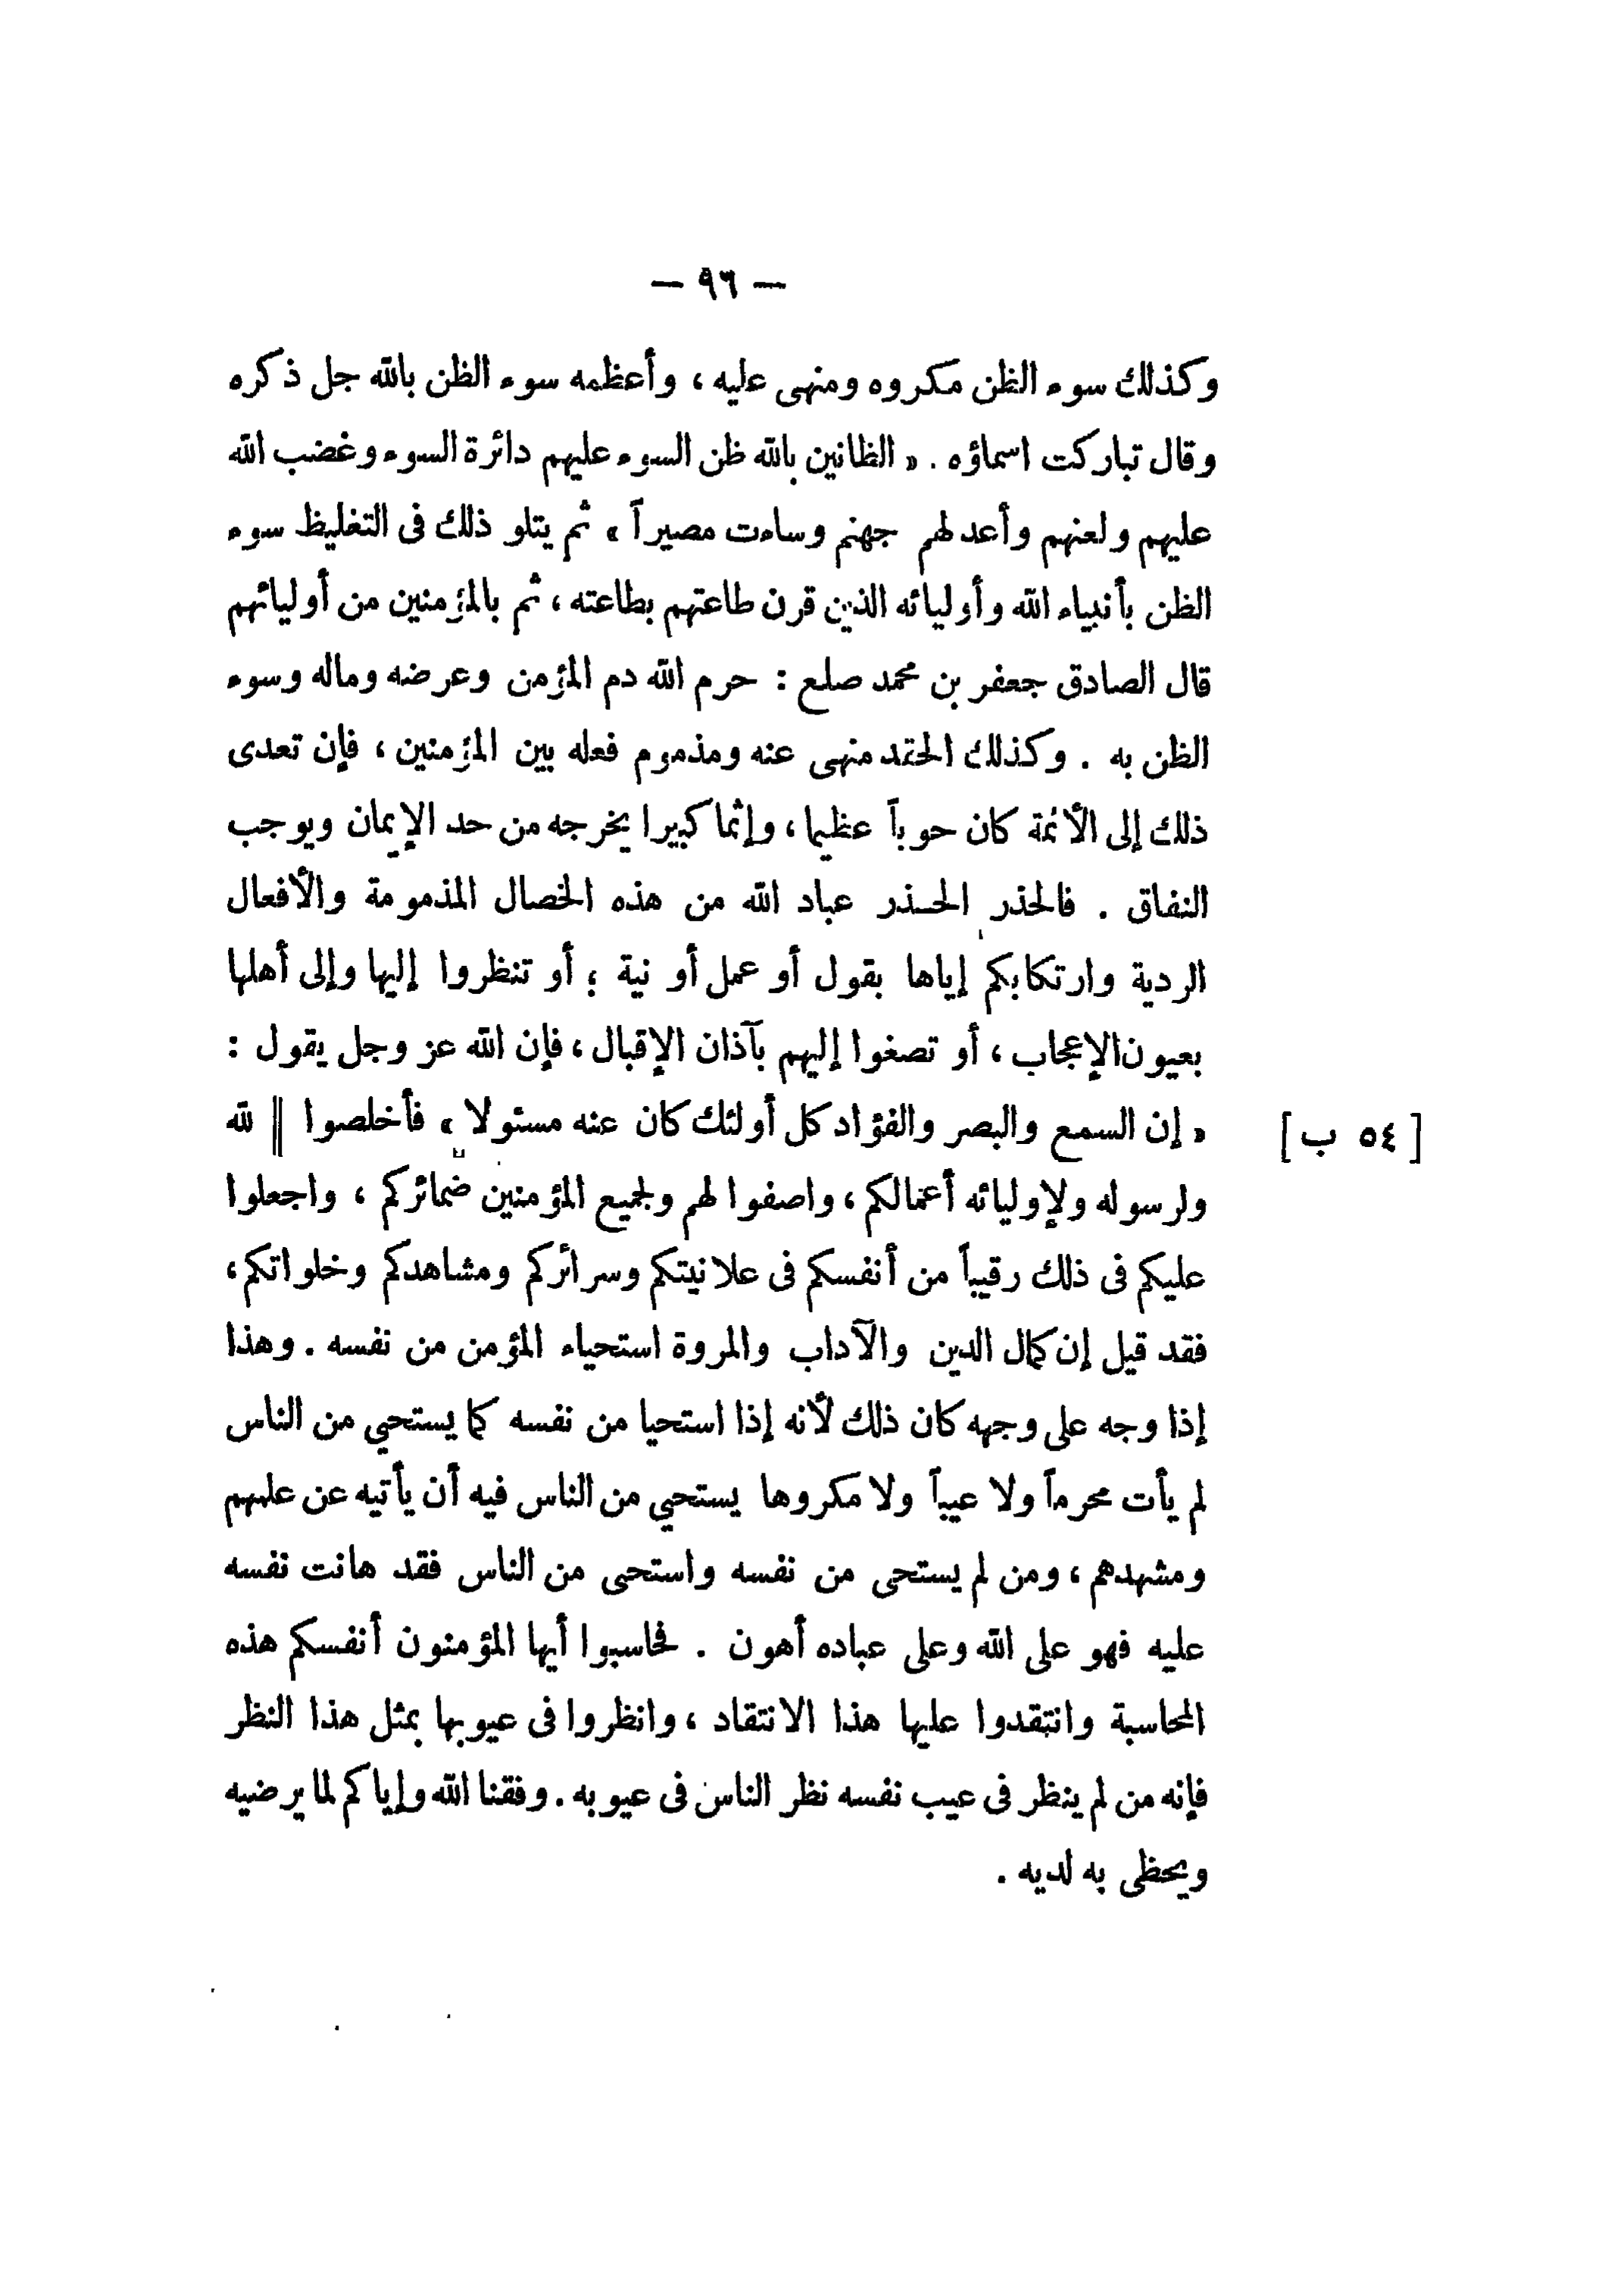 — ٩٦ —
وكذلك سوء الظن مكروه ومنهى عليه ، وأعظمه سوء الظن بالله جل ذكره
وقال تباركت اسماؤه . « الظانين بالله ظن السوء عليهم دائرة السوء وغضب الله
عليهم ولعنهم وأعد لهم جهنم وساءت مصيراً » ثم يتلو ذلك فى التغليظ سوء
الظن بأنبياء الله وأوليائه الذين قرن طاعتهم بطاعته ، ثم بالمؤمنين من أوليائهم
قال الصادق جعفر بن محمد صلع : حرم الله دم المؤمن وعرضه وماله وسوء
الظن به . وكذلك الحقد منهى عنه ومذموم فعله بين المؤمنين ، فإن تعدى
ذلك إلى الأئمة كان حوباً عظيما ، وإثما كبيرا يخرجه من حد الإيمان ويوجب
النفاق . فالحذر الحذر عباد الله من هذه الخصال المذمومة والأفعال
الردية وارتكابكم إياها بقول أو عمل أو نية ؛ أو تنظروا إليها وإلى أهلها
بعيون الإعجاب ، أو تصغوا إليهم بآذان الإقبال ، فإن الله عز وجل يقول :
« إن السمع والبصر والفؤاد كل أولئك كان عنه مسئولا » فأخلصوا || لله [ ٥٤ ب ]
ولرسوله ولإوليائه أعمالكم ، واصفوا لهم ولجميع المؤمنين ضمائركم ، واجعلوا
عليكم فى ذلك رقيباً من أنفسكم فى علانيتكم وسرائركم ومشاهدكم وخلواتكم ،
فقد قيل إن كمال الدين والآداب والمروة استحياء المؤمن من نفسه . وهذا
إذا وجه على وجهه كان ذلك لأنه إذا استحيا من نفسه كما يستحي من الناس
لم يأت محرماً ولا عيباً ولا مكروها يستحي من الناس فيه أن يأتيه عن علمهم
ومشهدهم ، ومن لم يستحى من نفسه واستحى من الناس فقد هانت نفسه
عليه فهو على الله وعلى عباده أهون . فحاسبوا أيها المؤمنون أنفسكم هذه
المحاسبة وانتقدوا عليها هذا الانتقاد ، وانظروا فى عيوبها بمثل هذا النظر
فإنه من لم ينظر فى عيب نفسه نظر الناس فى عيوبه . وفقنا الله وإياكم لما يرضيه
ويحظى به لديه .